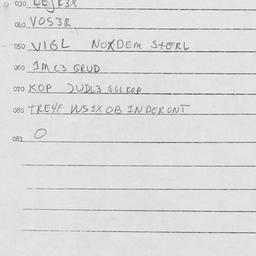 030 LEJR3X
040 VOS3R
050 VIGL NOXDEM S+ERL
060 1M C3 GRUD
070 KOP JUDL3 GGLKOP
080 TRE4F VVS1X OB 1NDERONT
082 O